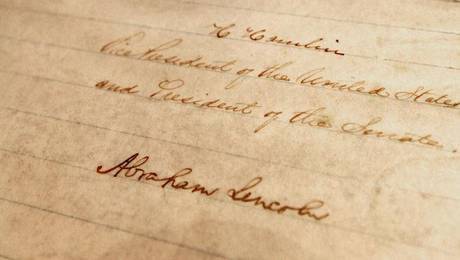 H Hamlin
Vice President of the United States
and President of the Senate.
Abraham Lincoln